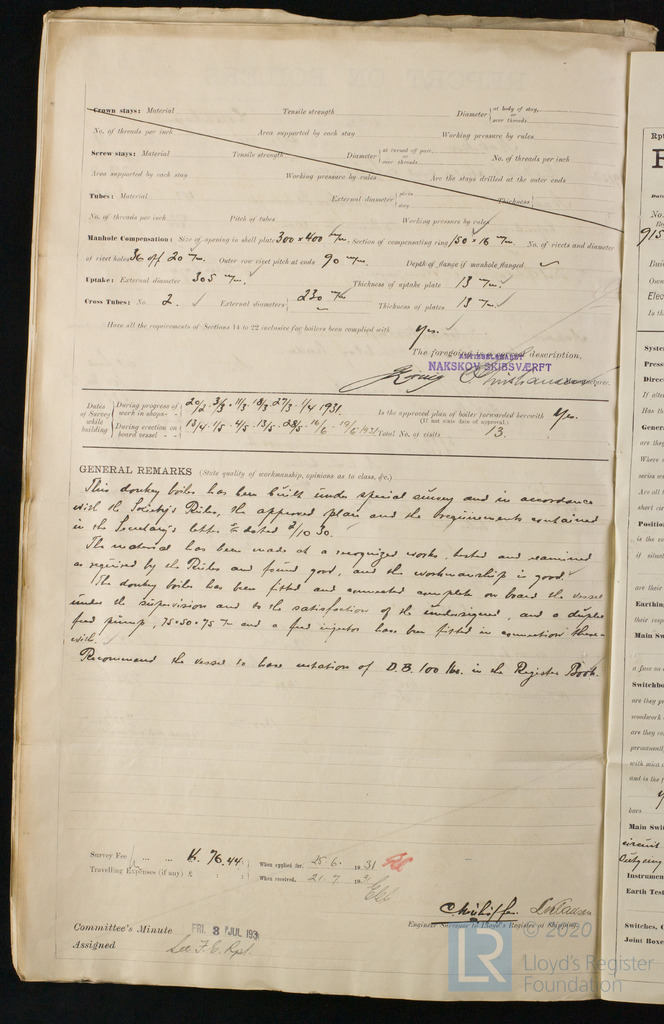 Crown stays: Material Tensile strength Diameter { at body of stay, or over threads.
No. of threads per inch Area supported by each stay Working pressure by rules
Screw stays: Material Tensile strength Diameter { at turned off part, or over threads. No. of threads per inch
Area supported by each stay Working pressure by rules Are the stays drilled at the outer ends
Tubes: Material External diameter { plain stay Thickness {
No. of threads per inch Pitch of tubes Working pressure by rules
Manhole Compensation: Size of opening in shell plate 300 x 400 m/m. Section of compensating ring 150 x 16 m/m. No. of rivets and diameter
of rivet holes 36 off 20 m/m. Outer row rivet pitch at ends 90 m/m. Depth of flange if manhole flanged
Uptake: External diameter 305 m/m. Thickness of uptake plate 13 m/m.
Cross Tubes: No. 2. External diameters { 230 m/m Thickness of plates 13 m/m.
Have all the requirements of Sections 14 to 22 inclusive for boilers been complied with Yes.
The foregoing is a correct description,
AKTIESELSKABET
NAKSKOV SKIBSVÆRFT
Dates of Survey while building { During progress of work in shops - - 20/2 3/3 11/3 18/3 27/3 1/4 1931. Is the approved plan of boiler forwarded herewith Yes.
(If not state date of approval.)
During erection on board vessel - - 13/4 1/5 4/5 13/5 28/5 16/6 19/6 1931 Total No. of visits 13.
GENERAL REMARKS (State quality of workmanship, opinions as to class, &c.)
This donkey boiler has been built under special survey and in accordance
with the Society's Rules, the approved plan and the requirements contained
in the Secretary's letter dated 2/10 30.
The material has been made at a recognized works, tested and examined
as required by the Rules and found good, and the workmanship is good.
The donkey boiler has been fitted and connected complete on board the vessel
under the supervision and to the satisfaction of the undersigned, and a duplex
feed pump, 75 x 50 x 75 m/m and a feed injector have been fitted in connection there-
with.
Recommend the vessel to have notation of D.B. 100 lbs. in the Register Book.
Survey Fee ... ... K. 76.44 When applied for. 25.6. 1931
Travelling Expenses (if any) £ : : When received, 21.7. 19
Engineer Surveyor to Lloyd's Register of Shipping.
Committee's Minute FRI. 3 JUL 193
Assigned See F.E. Rpt.
© 2020
LR Lloyd's Register
Foundation
Rpt
No.
915
Syste
Press
Direc
If alte
Has th
Gener
are the
Where
Positio
is the vo
it situat
are their
Earthin
their resp
Main Sw
Switchbo
are they pr
woodwork
are they co
permanently
with mica o
and is the f
bars
Main Swi
circuit
Instrumen
Earth Test
Switches, C
Joint Boxe